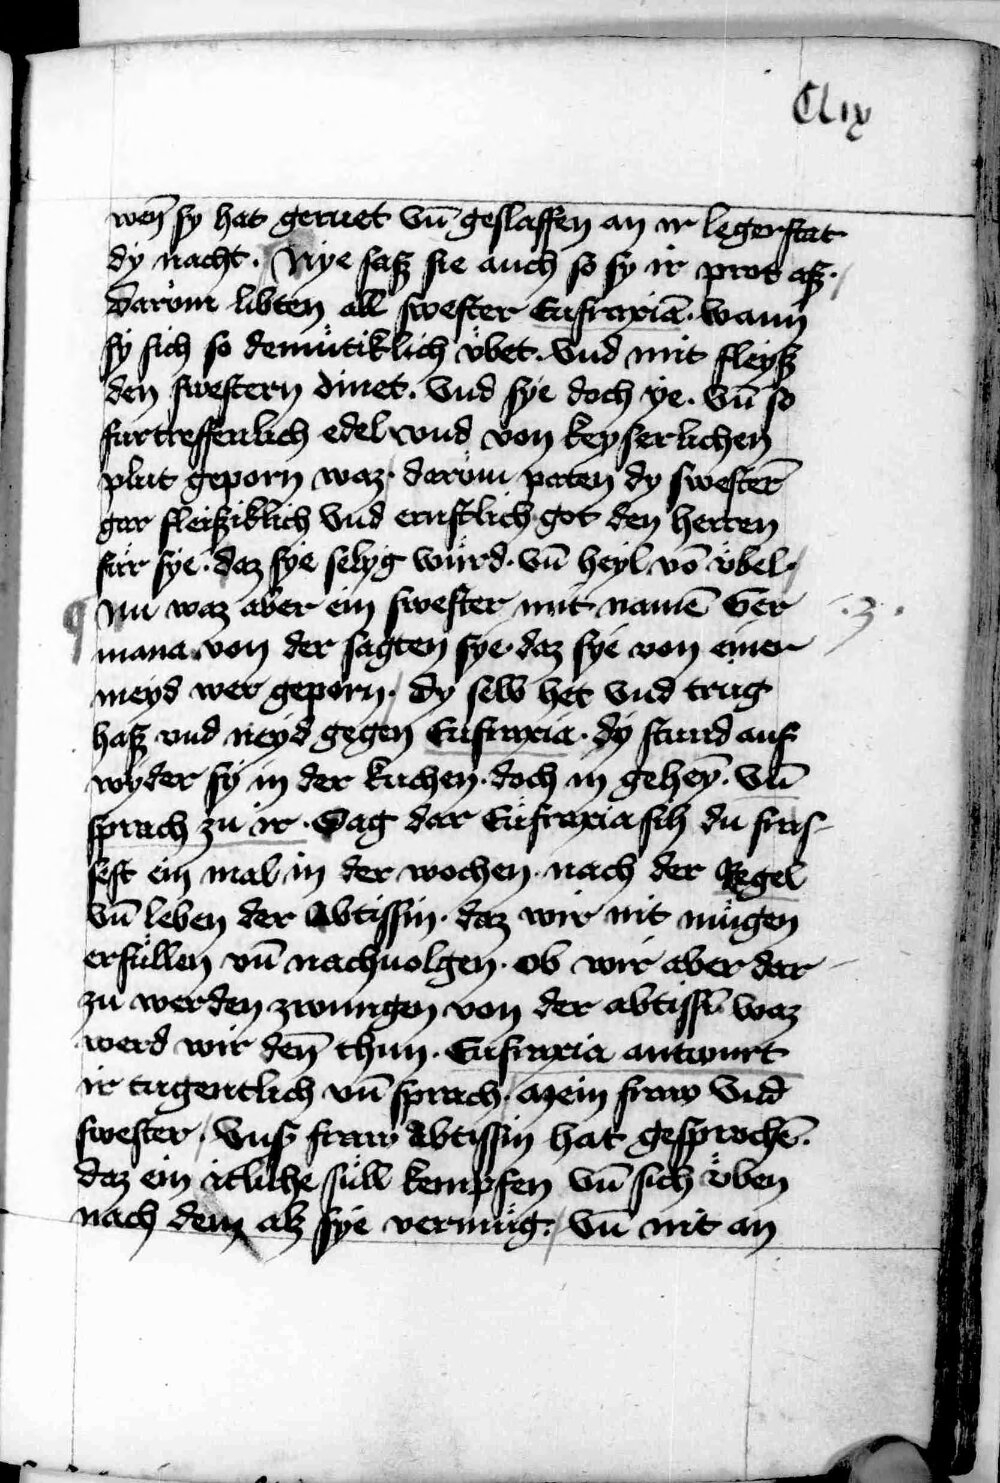 Clix
wen̄ sy hat geruet vn̄ geslaffen an ir legerstat
dy nacht. Nye saß sie auch so sy ir prot aß.
Darům libten all swester Eufraxiā. wann
sy sich so demütiklich übet. vnd mit fleyß
den swestern dinet. vnd sye doch ye. vn̄ so
furtreffenlich edel vnd von keyserlichen
plut geporn waz. darům paten dy swester̄
gar fleißiklich vnd ernstlich got den herren
für sye. daz sye selyg würd. vn̄ heyl vō übel.
Nu waz aber ein swester mit namē Ger
mana. von der sagten sye. daz sye von einer
meyd wer geporn. dy selb het vnd trug
haß vnd neyd gegen Eufraxia. dy stund auf
wyder sy in der kuchen. doch in geheȳ. vn̄
sprach zu ir. Sag dar Eufraxia sih du fas-
sest ein mal in der wochen. nach der Regel
vn̄ leben der Abtissin. daz wir nit mügen
erfüllen vn̄ nachuolgen. ob wir aber dar
zu werden zwungen von der abtissī. waz
werd wir den̄ thun. Eufraxia antwurt
ir tugentlich vn̄ sprach. Mein fraw vnd
swester. vnß fraw Abtissin hat gesprochē.
daz ein itliche süll kempfen vn̄ sich üben
nach dem alz sye vermüg. vn̄ nit an
.3.